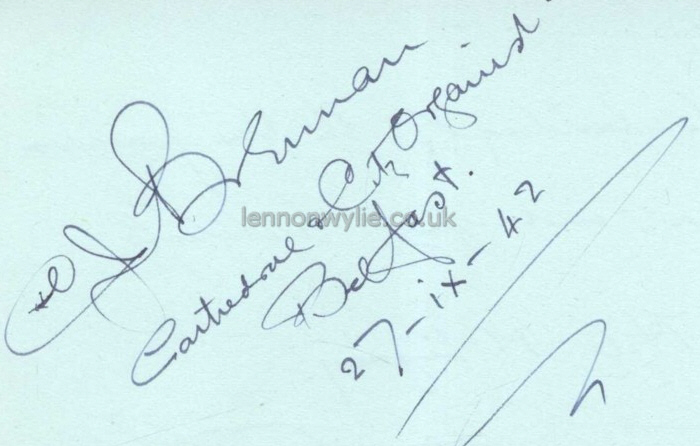 CJ Brennan
Cathedral & City Organist
Belfast.
27-ix-42
lennonwylie.co.uk